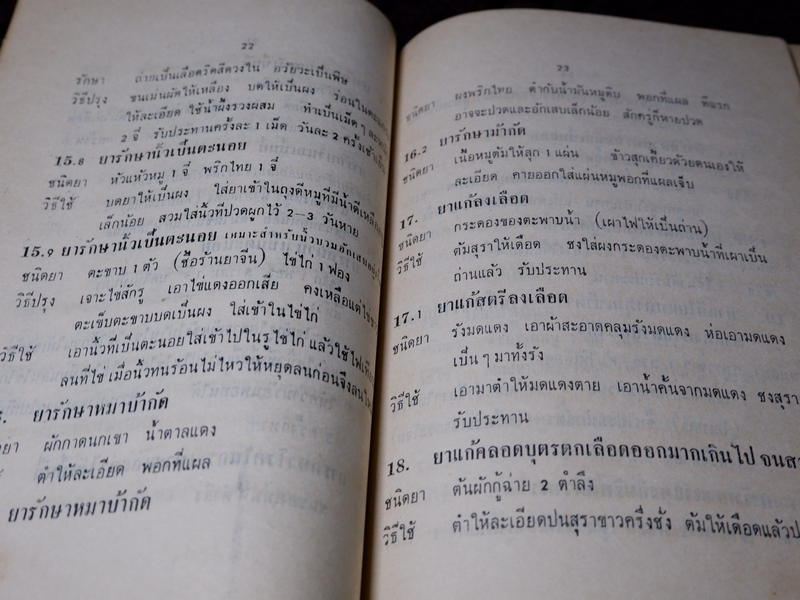 22
รักษา ถ่ายเป็นเลือดริดสีดวงใน อวัยวะเป็นพิษ
วิธีปรุง ชนเม่นผัดให้เหลือง บดให้เป็นผง ร่อนในตะแกรง
ให้ละเอียด ใช้น้ำผึ้งรวงผสม ทำเป็นเม็ดๆ ละ
2 จี่ รับประทานครั้งละ 1 เม็ด วันละ 2 ครั้งเช้าเย็น
15.8 ยารักษานิ้วเป็นตะนอย
ชนิดยา หัวแห้วหมู 1 จี่ พริกไทย 1 จี่
วิธีใช้ บดยาให้เป็นผง ใส่ยาเข้าในถุงดีหมูที่มีน้ำดีเหลือ
เล็กน้อย สวมใส่นิ้วที่ปวดผูกไว้ 2–3 วันหาย
15.9 ยารักษานิ้วเป็นตะนอย เหมาะสำหรับนิ้วบวมอักเสบ
ชนิดยา ตะขาบ 1 ตัว (ซื้อร้านยาจีน) ไข่ไก่ 1 ฟอง
วิธีปรุง เจาะไข่สักรู เอาไข่แดงออกเสีย คงเหลือแต่ไข่
ตะเข็บตะขาบบดเป็นผง ใส่เข้าในไข่ไก่
วิธีใช้ เอานิ้วที่เป็นตะนอยใส่เข้าไปในรูไข่ไก่ แล้วใช้ไฟเทียน
ลนที่ไข่ เมื่อนิ้วทนร้อนไม่ไหวให้หยุดลนก่อนจึงลน
ยารักษาหมาบ้ากัด
ผักกาดนกเขา น้ำตาลแดง
ตำให้ละเอียด พอกที่แผล
ยารักษาหมาบ้ากัด
23
ชนิดยา ผงพริกไทย ตำกับน้ำมันหมูดิบ พอกที่แผล ที่แรก
อาจจะปวดและอักเสบเล็กน้อย สักครู่ก็หายปวด
16.2 ยารักษาม้ากัด
ชนิดยา เนื้อหมูต้มให้สุก 1 แผ่น ข้าวสุกเคี้ยวด้วยตนเองให้
ละเอียด คายออกใส่แผ่นหมูพอกที่แผลเจ็บ
17. ยาแก้ลงเลือด
ชนิดยา กระดองของตะพาบน้ำ (เผาไฟให้เป็นถ่าน)
วิธีใช้ ต้มสุราให้เดือด ชงใส่ผงกระดองตะพาบน้ำที่เผาเป็น
ถ่านแล้ว รับประทาน
17.1 ยาแก้สตรีลงเลือด
ชนิดยา รังมดแดง เอาผ้าสะอาดคลุมรังมดแดง ห่อเอามดแดง
เป็นๆ มาทั้งรัง
วิธีใช้ เอามาตำให้มดแดงตาย เอาน้ำคั้นจากมดแดง ชงสุรา
รับประทาน
18. ยาแก้คลอดบุตรตกเลือดออกมากเกินไป จน
ชนิดยา ต้นผักกู้ฉ่าย 2 ตำลึง
วิธีใช้ ตำให้ละเอียดปนสุราขาวครึ่งชั่ง ต้มให้เดือดแล้ว